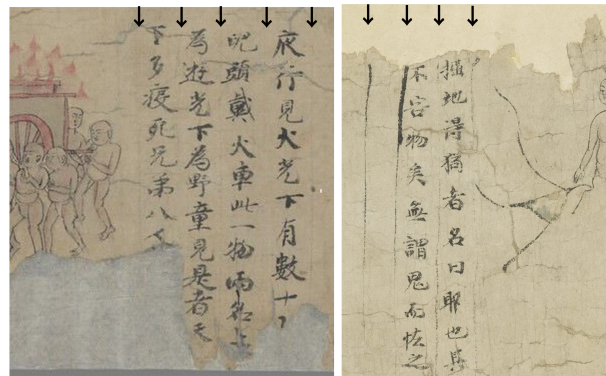 夜行見火光下有數十
兒頭戴火車此一物兩名上
為遊光下為野童見是者天
下多疫死兄弟八人
掘地得猪者名曰耶也其
不害物矣無謂鬼而怪之